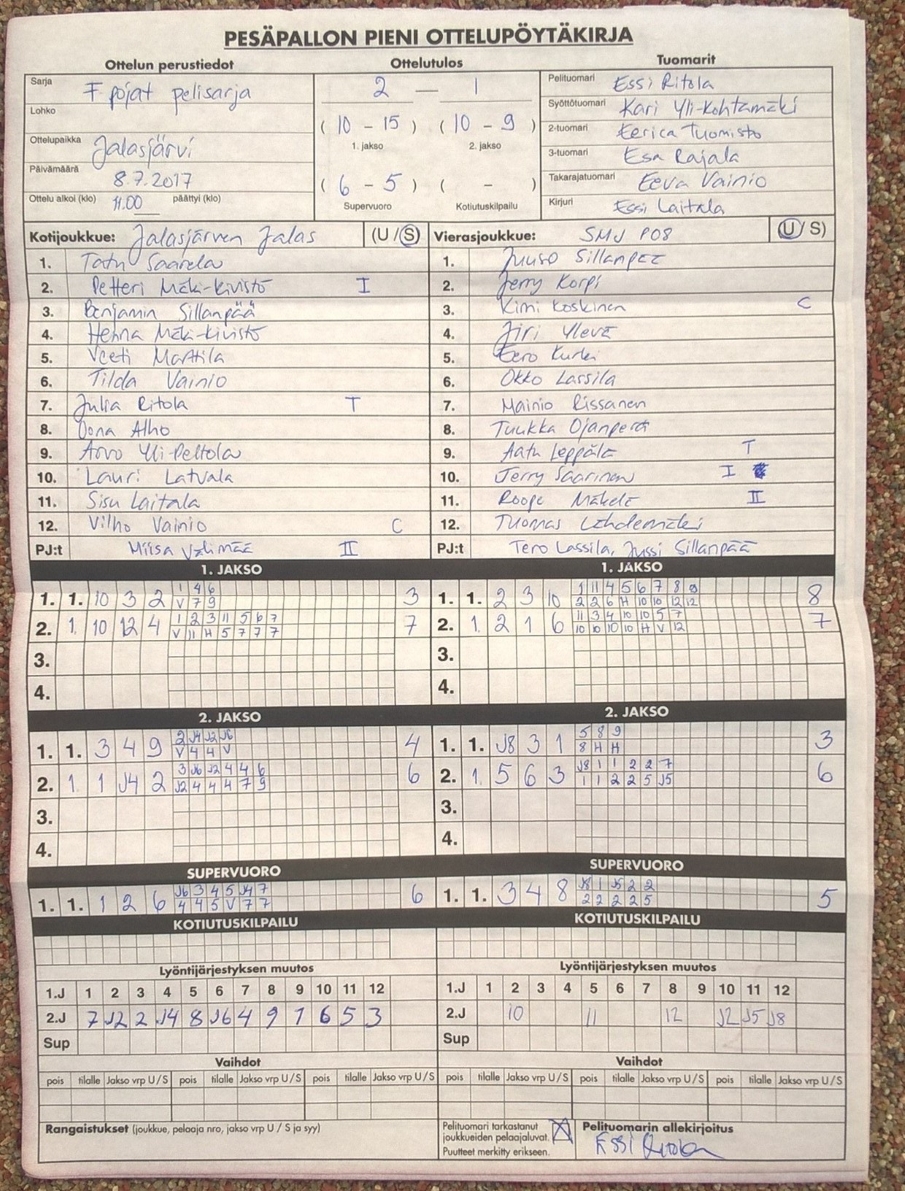 PESÄPALLON PIENI OTTELUPÖYTÄKIRJA
Ottelun perustiedot
Sarja F pojat pelisarja
Lohko
Ottelupaikka Jalasjärvi
Päivämäärä 8.7.2017
Ottelu alkoi (klo) 11.00 päättyi (klo)
Ottelutulos
2 — 1
( 10 - 15 ) ( 10 - 9 )
1. jakso 2. jakso
( 6 - 5 ) ( - )
Supervuoro Kotiutuskilpailu
Tuomarit
Pelituomari Essi Ritola
Syöttötuomari Kari Yli-Kohtamäki
2-tuomari Eerica Tuomisto
3-tuomari Esa Rajala
Takarajatuomari Eeva Vainio
Kirjuri Essi Laitala
Kotijoukkue: Jalasjärven Jalas (U / S)
1. Tatu Saarela
2. Petteri Mäki-Kivistö I
3. Benjamin Sillanpää
4. Henna Mäki-Kivistö
5. Veeti Marttila
6. Tilda Vainio
7. Julia Ritola T
8. Oona Alho
9. Arvo Yli-Peltola
10. Lauri Latvala
11. Sisu Laitala
12. Vilho Vainio C
PJ:t Miisa Välimää II
Vierasjoukkue: SMJ P08 (U / S)
1. Juuso Sillanpää
2. Jerry Korpi
3. Kimi Koskinen C
4. Jiri Ylevä
5. Eero Kurki
6. Okko Lassila
7. Mainio Rissanen
8. Tuukka Ojanperä
9. Aatu Leppälä T
10. Jerry Saarinen I
11. Roope Mäkelä II
12. Tuomas Lehdemäki
PJ:t Tero Lassila, Jussi Sillanpää
1. JAKSO
1. 1. 10 3 2 1 4 6 3
V 7 9
2. 1. 10 12 4 1 2 3 11 5 6 7 7
V 11 H 5 7 7 7
3.
4.
1. JAKSO
1. 1. 2 3 10 1 11 4 5 6 7 8 9 8
2 2 6 H 10 10 12 12
2. 1. 2 1 6 11 3 4 10 10 5 7 7
10 10 10 10 H V 12
3.
4.
2. JAKSO
1. 1. 3 4 9 2 J4 J2 J6 4
V 4 4 V
2. 1. 1 J4 2 3 J6 J2 4 4 6 6
J2 4 4 4 7 9
3.
4.
2. JAKSO
1. 1. J8 3 1 5 8 9 3
8 H H
2. 1. 5 6 3 J8 1 1 2 2 7 6
1 1 2 2 5 J5
3.
4.
SUPERVUORO
1. 1. 1 2 6 J6 3 4 5 J4 7 6
4 4 5 V 7 7
SUPERVUORO
1. 1. 3 4 8 J8 1 J5 2 2 5
2 2 2 2 5
KOTIUTUSKILPAILU
Lyöntijärjestyksen muutos
1.J 1 2 3 4 5 6 7 8 9 10 11 12
2.J 7 J2 2 J4 8 J6 4 9 1 6 5 3
Sup
Vaihdot
pois tilalle Jakso vrp U / S pois tilalle Jakso vrp U / S pois tilalle Jakso vrp U / S
Rangaistukset (joukkue, pelaaja nro, jakso vrp U / S ja syy)
KOTIUTUSKILPAILU
Lyöntijärjestyksen muutos
1.J 1 2 3 4 5 6 7 8 9 10 11 12
2.J 10 11 12 J2 J5 J8
Sup
Vaihdot
pois tilalle Jakso vrp U / S pois tilalle Jakso vrp U / S pois tilalle Jakso vrp U / S
Pelituomari tarkastanut
joukkueiden pelaajaluvat. X
Puutteet merkitty erikseen.
Pelituomarin allekirjoitus
Essi Ritola